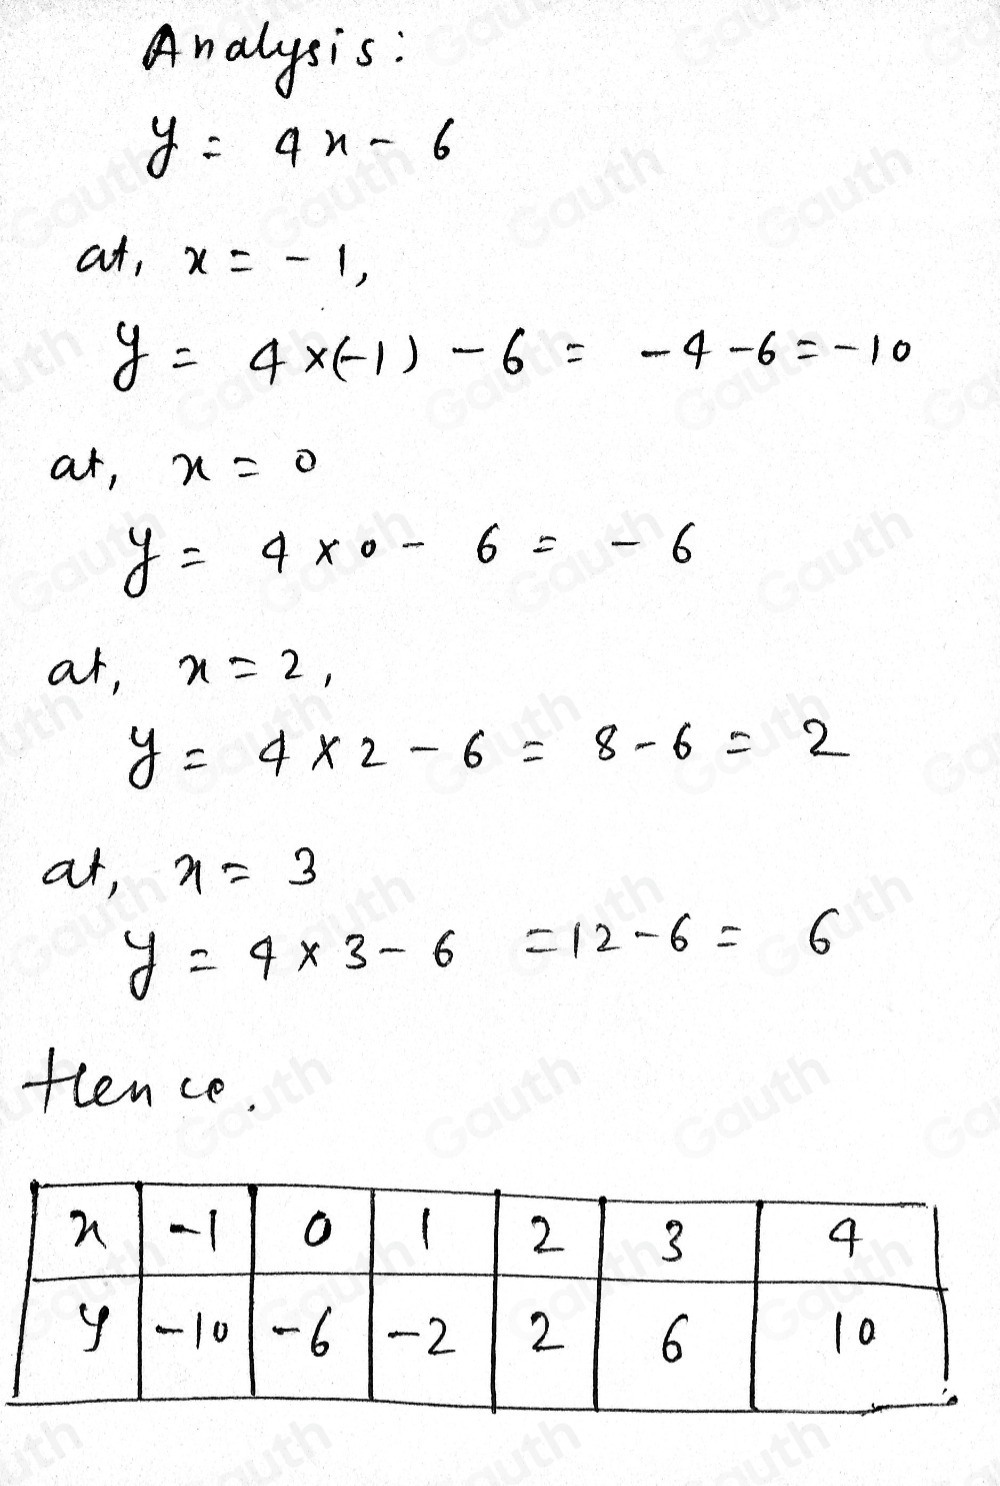 Analysis:
y = 4x - 6
at, x = -1,
y = 4×(-1) - 6 = -4-6 = -10
at, x = 0
y = 4×0 - 6 = -6
at, x = 2,
y = 4×2 - 6 = 8-6 = 2
at, x = 3
y = 4×3 - 6 = 12-6 = 6
Hence.
x -1 0 1 2 3 4
y -10 -6 -2 2 6 10